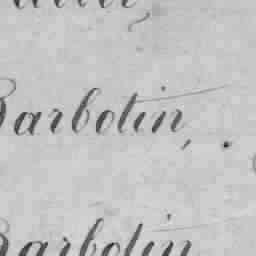 Barbotin,.
Barbotin